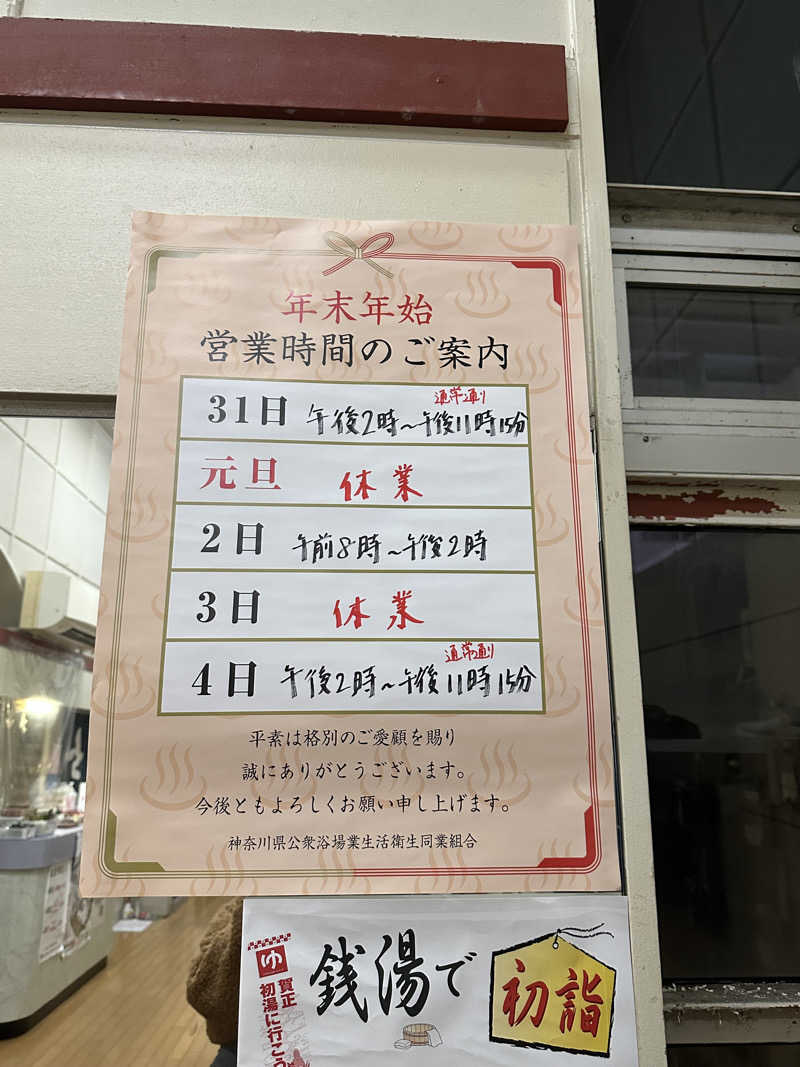 年末年始
営業時間のご案内
通常通り
31日 午後2時～午後11時15分
元旦 休業
2日 午前8時～午後2時
3日 休業
通常通り
4日 午後2時～午後11時15分
平素は格別のご愛顧を賜り
誠にありがとうございます。
今後ともよろしくお願い申し上げます。
神奈川県公衆浴場業生活衛生同業組合
ゆ
賀正
初湯に行こう
銭湯で
初詣